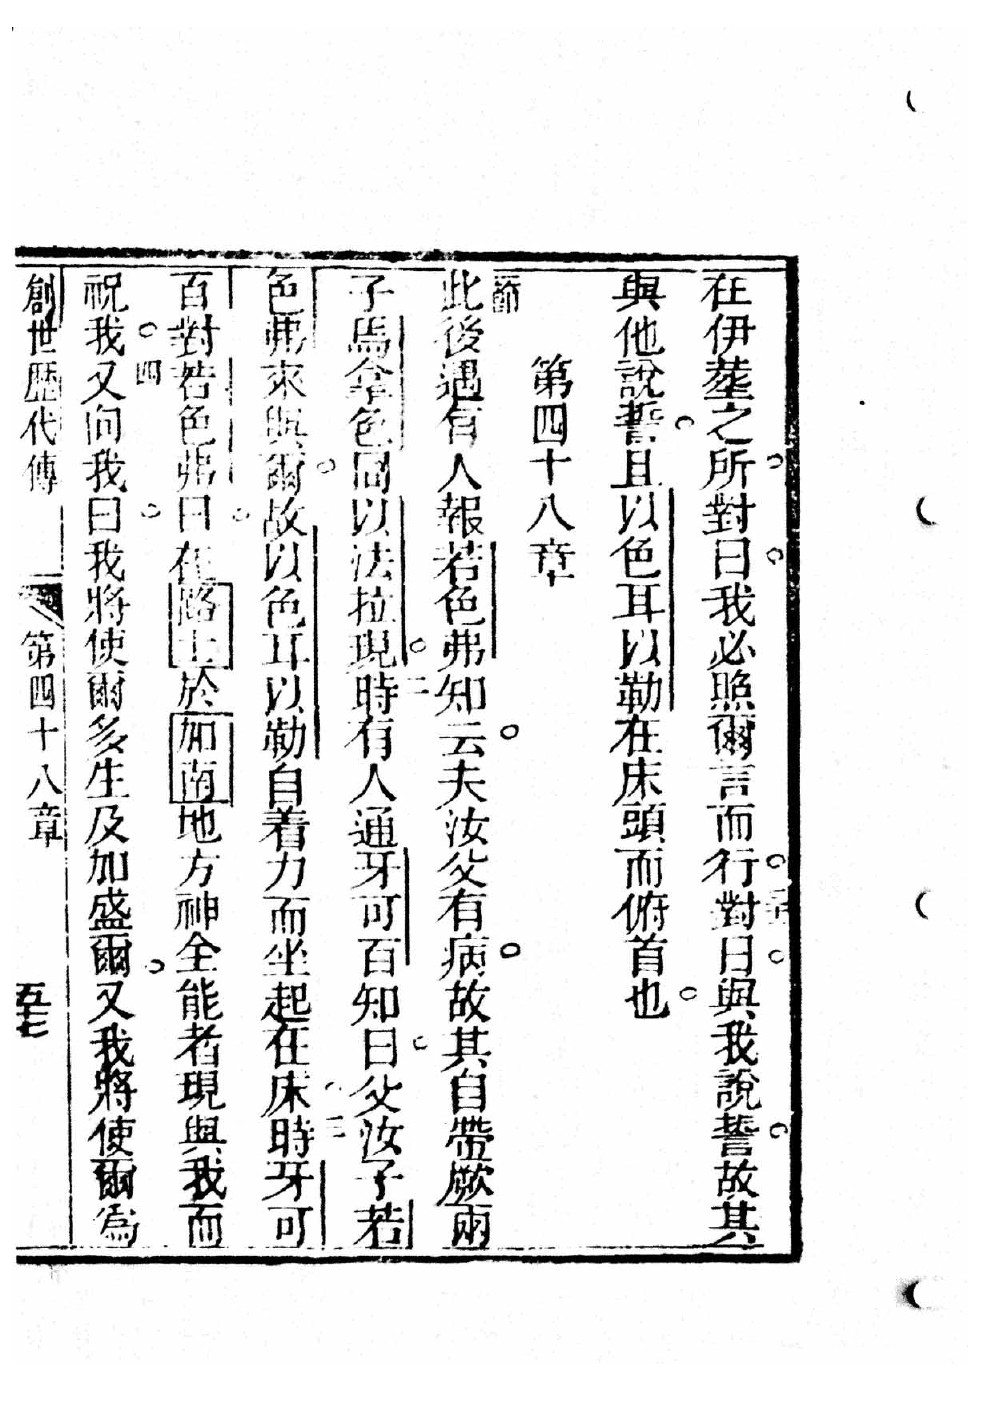 在伊塟之所對曰我必照爾言而行對曰與我說誓故其
三十
與他說誓且以色耳以勒在床頭而俯首也
第四十八章
節
此後遇有人報若色弗知云夫汝父有病故其自帶厥兩
子馬拿色同以法拉現時有人通牙可百知曰父汝子若
二
色弗來與爾故以色耳以勒自着力而坐起在床時牙可
三
百對若色弗曰在路士於加南地方神全能者現與我而
祝我又向我曰我將使爾多生及加盛爾又我將使爾為
四
創世歷代傳 第四十八章 五十七